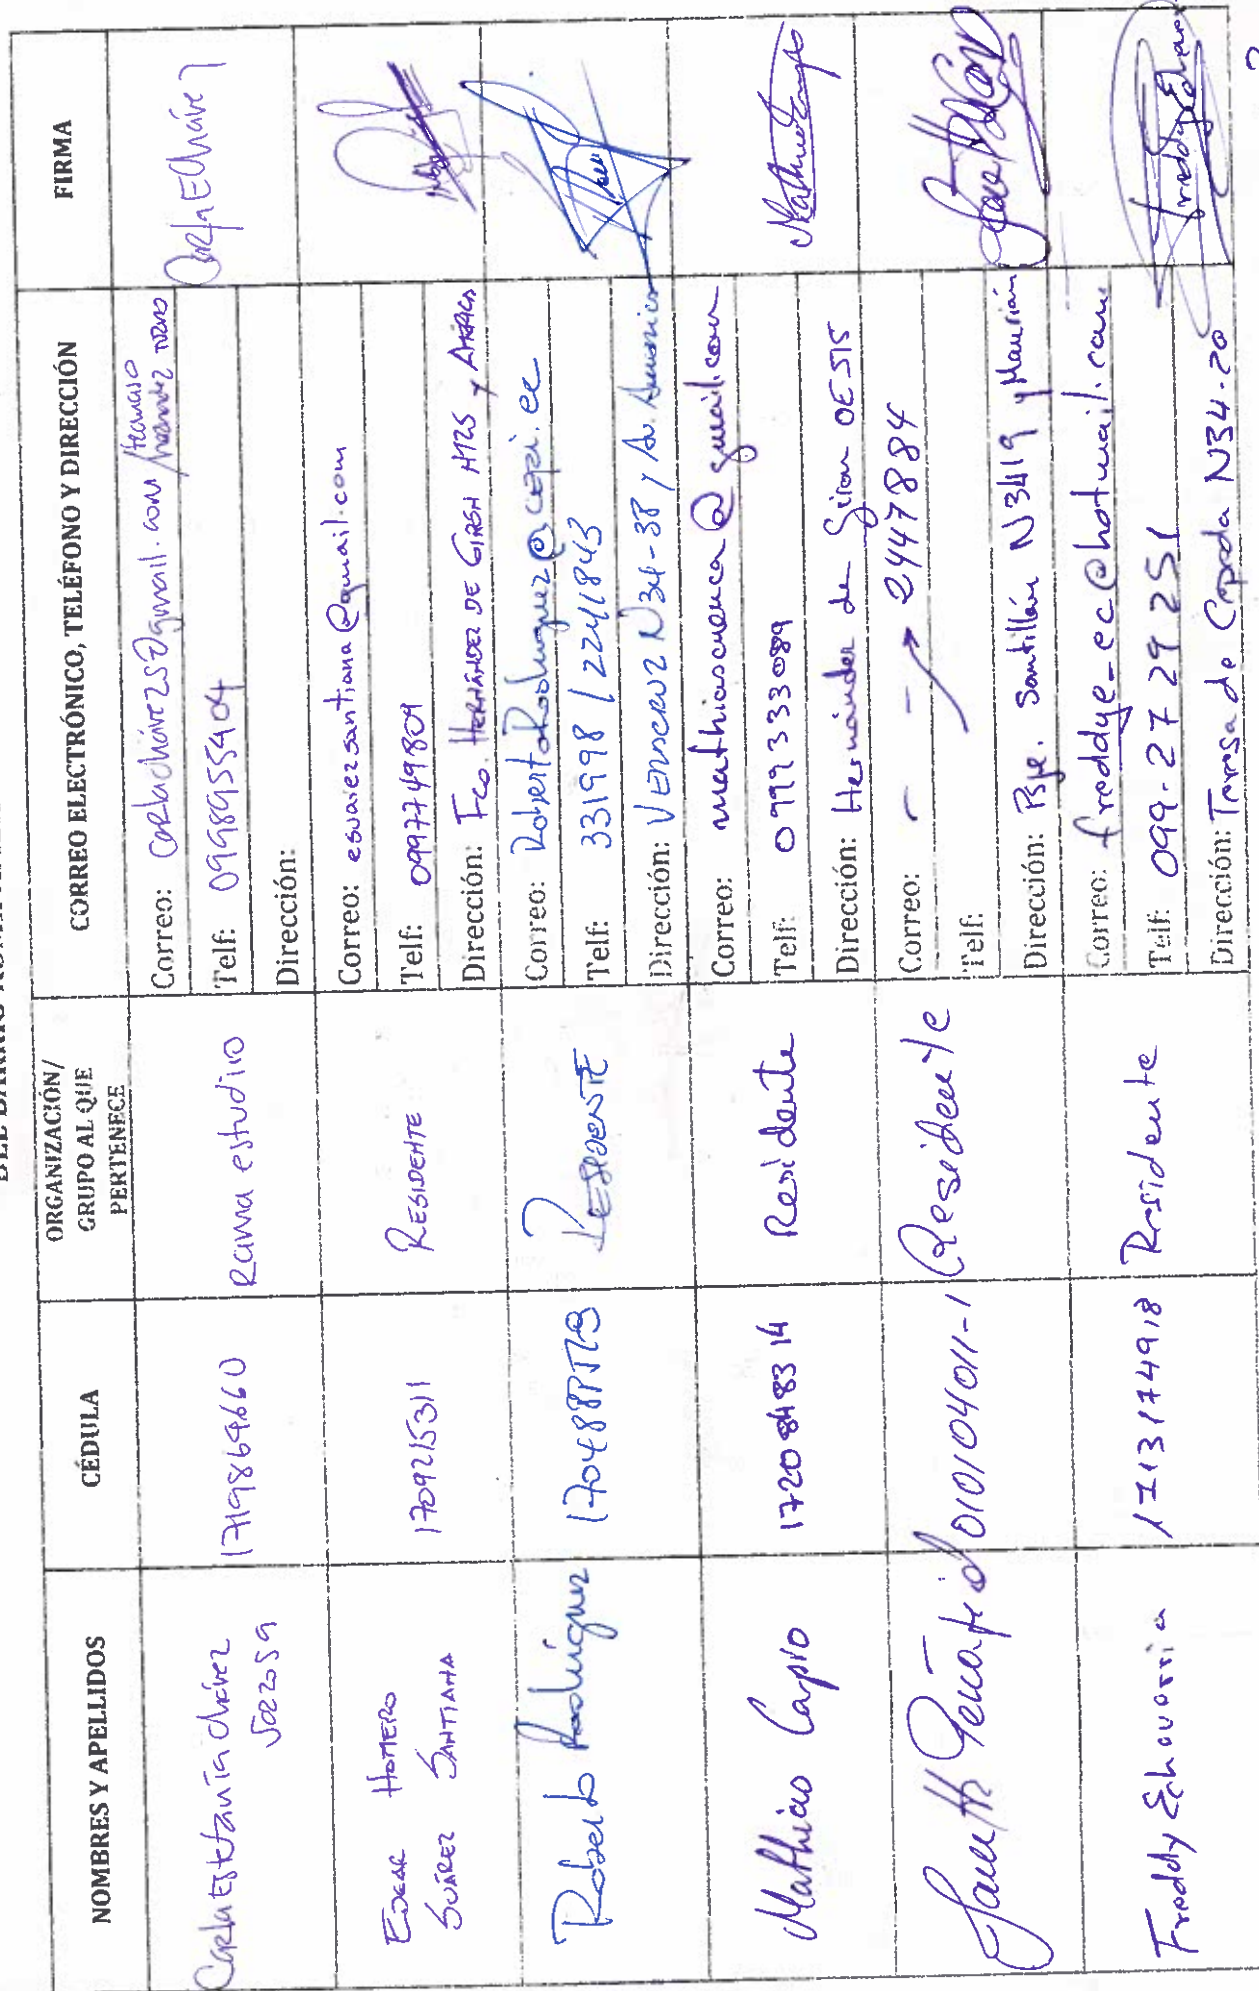 NOMBRES Y APELLIDOS
CÉDULA
ORGANIZACIÓN/
GRUPO AL QUE
PERTENECE
CORREO ELECTRÓNICO, TELÉFONO Y DIRECCIÓN
FIRMA
Carla Estefanía chávez
1719864660
Rama estudio
Correo: carlachavez25@gmail.com
Telf: 0998955404
Dirección:
Carla Chávez
EDGAR HOMERO
SUÁREZ SANTIANA
1709215311
RESIDENTE
Correo: esuarezsantiana@gmail.com
Telf: 0997749809
Dirección: Fco. HERNÁNDEZ DE GIRÓN
Roberto Rodríguez
RESIDENTE
Correo: RobertoRodriguez@cepi.ec
Telf: 331998 / 2241843
Dirección: VERACRUZ N34-38 y Av. America
Mathias Carpio
1720848314
Residente
Correo: mathiascuenca@gmail.com
Telf: 0999333089
Dirección: Hernández de Giron OE515
Janeth Peñafiel
010104011-1
Residente
Correo: - - 2447884
Telf:
Dirección: Psje. Santillán N3419 y Maurián
Freddy Echavarria
1713174918
Residente
Correo: freddye_ec@hotmail.com
Telf: 099-27 29 251
Dirección: Teresa de Cepeda N34-20